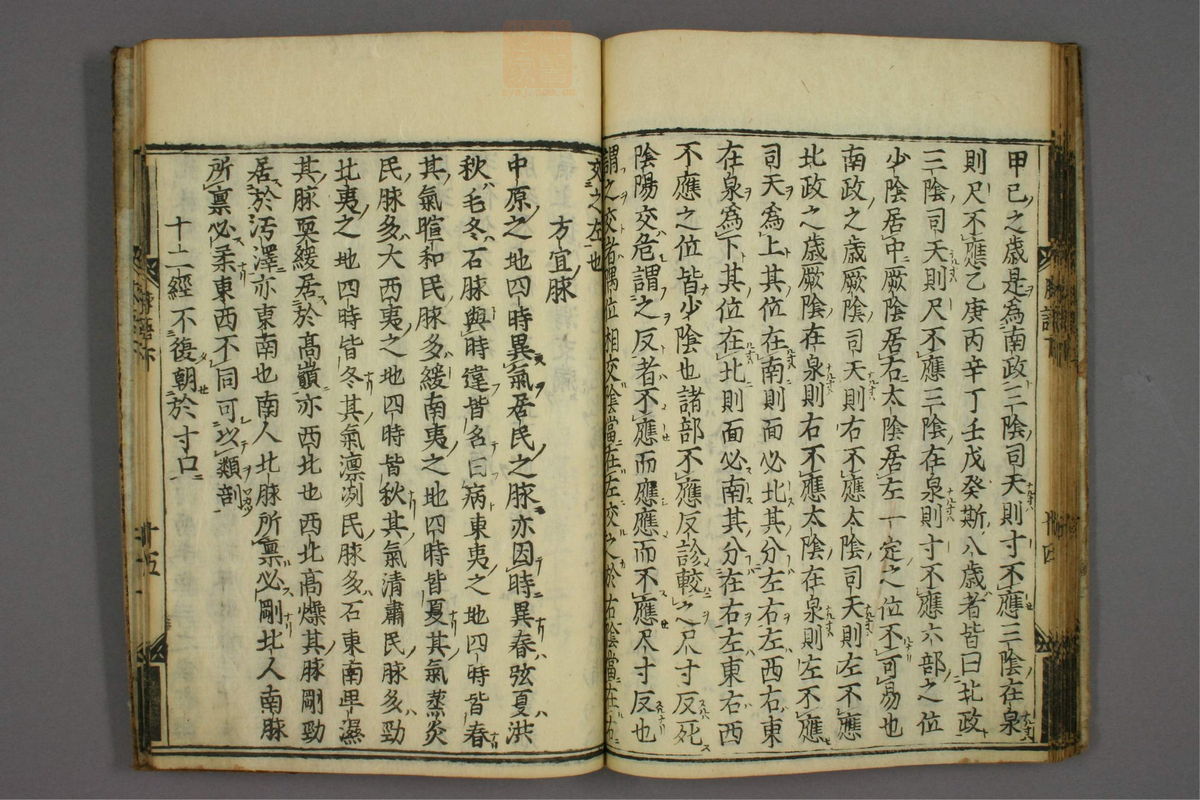 甲己之歳是爲南政三陰司天則寸不應三陰在泉
則尺不應乙庚丙辛丁壬戊癸斯八歳者皆曰北政
三陰司天則尺不應三陰在泉則寸不應六部之位
少陰居中厥陰居右太陰居左一定之位不可易也
南政之歳厥陰司天則右不應太陰司天則左不應
北政之歳厥陰在泉則右不應太陰在泉則左不應
司天爲上其位在南則面必北其分左右左西右東
在泉爲下其位在北則面必南其分在右左東右西
不應之位皆少陰也諸部不應反診較之尺寸反死
陰陽交危謂之反者不應而應應而不應尺寸反也
謂之交者謂位相交陰當在左交之於右陰當在右
交之左也
方宜脉
中原之地四時異氣居民之脉亦因時異春弦夏洪
秋毛冬石脉與時違皆名曰病東夷之地四時皆春
其氣暄和民脉多緩南夷之地四時皆夏其氣蒸炎
民脉多大西夷之地四時皆秋其氣清肅民脉多勁
北夷之地四時皆冬其氣凛冽民脉多石東南卑濕
其脉耎緩居於高巔亦西北也西北高燥其脉剛勁
居於汚澤亦東南也南人北脉所禀必剛北人南脉
所禀必柔東西不同可以類剖
十二經不復朝於寸口
廿五